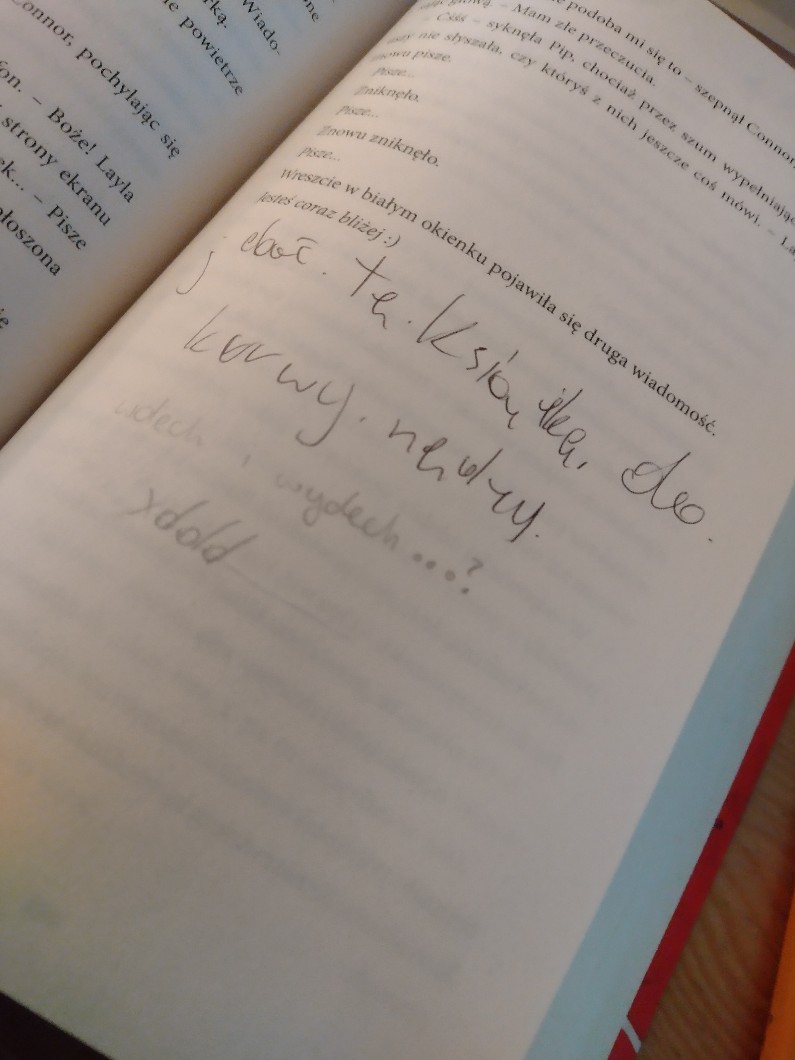 one
Wiado-
rką.
ie powietrze
Connor, pochylając się
fon. – Boże! Layla
strony ekranu
ek... – Pisze
ołoszona
ie
podoba mi się to – szepnął Connor,
głową. – Mam złe przeczucia.
– Ciśś – syknęła Pip, chociaż przez szum wypełniając
uszy nie słyszała, czy któryś z nich jeszcze coś mówi. – La
znowu pisze.
pisze...
Zniknęło.
pisze...
Znowu zniknęło.
pisze...
Wreszcie w białym okienku pojawiła się druga wiadomość.
Jesteś coraz bliżej :)
jebać. tą. książkę, do.
kurwy. nędzy.
wdech i wydech...?
xdddd